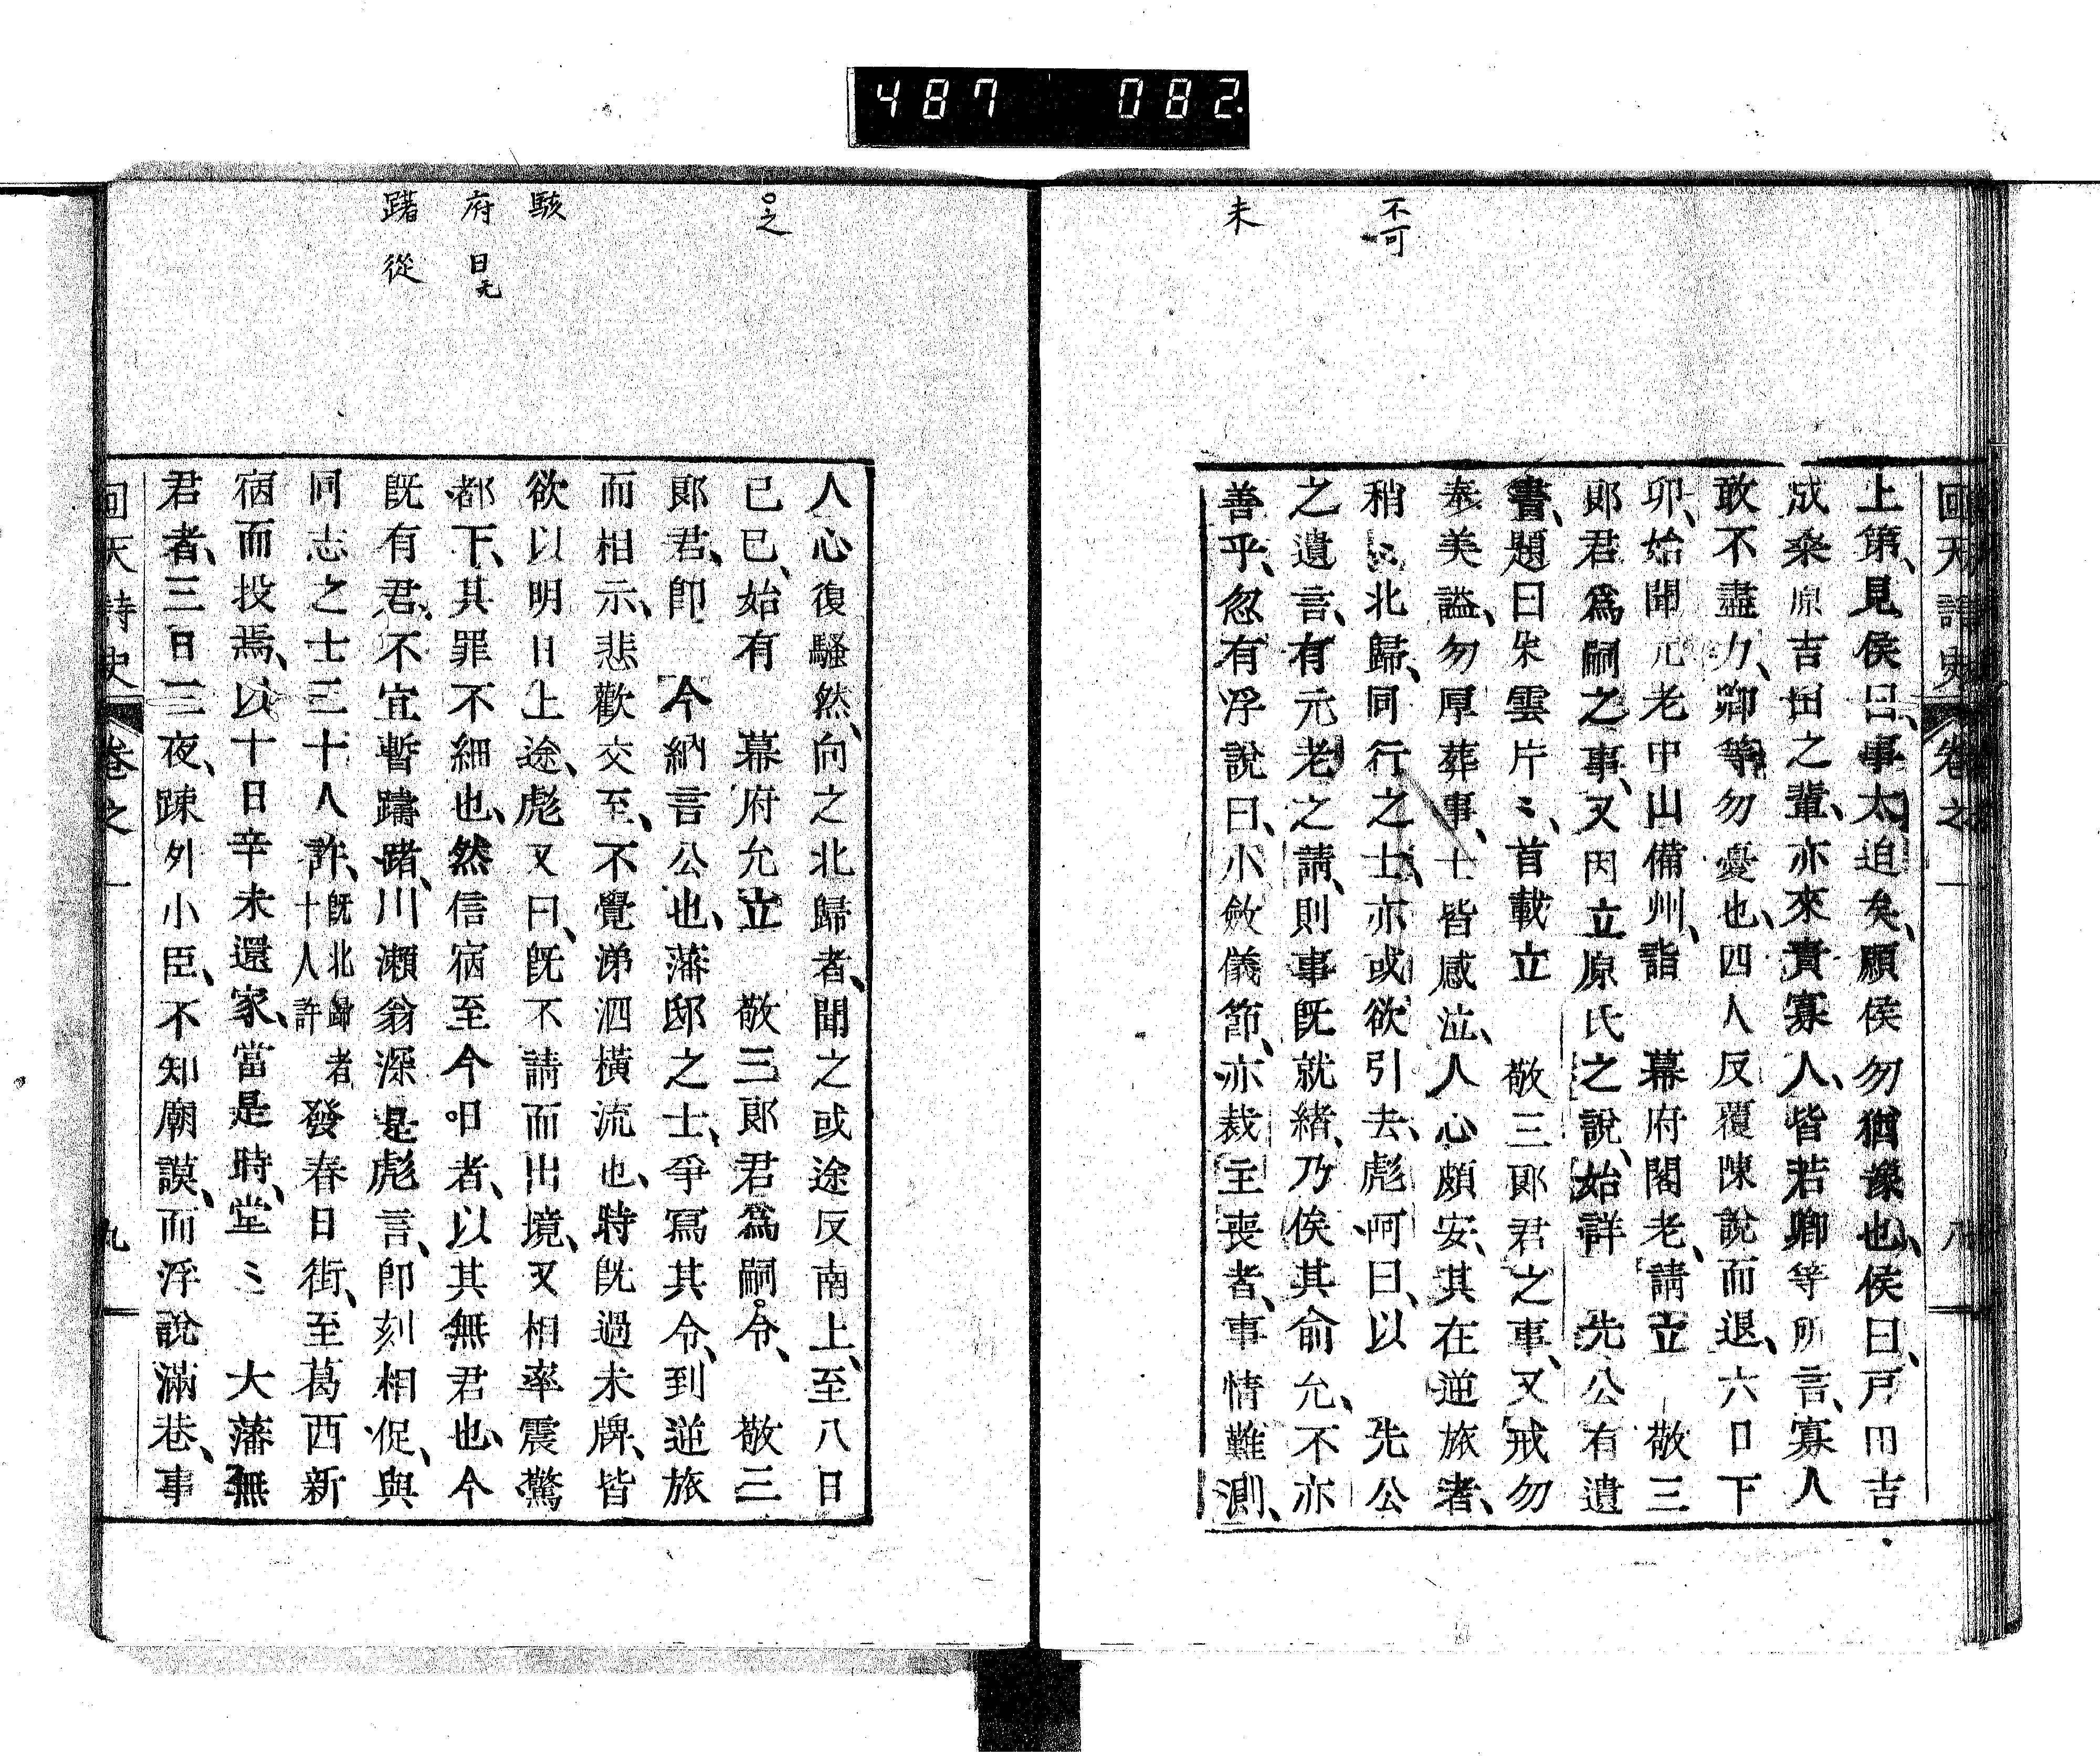 487 082
不可
未
回天詩史 卷之一 八
上第、見侯曰、事太迫矣、願侯勿猶豫也、侯曰、戸田吉
成桑原吉田之輩、亦來責寡人、皆若卿等所言、寡人
敢不盡力、卿等勿憂也、四人反覆陳說而退、六日丁
卯、始聞元老中山備州、詣 幕府閣老、請立 敬三
郞君爲嗣之事、又因立原氏之說、始詳 先公有遺
書、題曰朱雲片〻、首載立 敬三郞君之事、又戒勿
奉美謚、勿厚葬事、士皆感泣、人心頗安、其在逆旅者、
稍〻北歸、同行之士、亦或欲引去、彪呵曰、以 先公
之遺言、有元老之請、則事旣就緖、乃俟其俞允、不亦
善乎、忽有浮說曰、小斂儀節、亦裁主喪者、事情難測、
之
駭
府 日无
躇 從
人心復騷然、向之北歸者、聞之或途反南上、至八日
已巳、始有 幕府允立 敬三郞君爲嗣令、 敬三
郞君、卽 今納言公也、藩邸之士、爭寫其令、到逆旅
而相示、悲歡交至、不覺涕泗橫流也、時旣過未牌、皆
欲以明日上途、彪又曰、旣不請而出境、又相率震驚
都下、其罪不細也、然信宿至今日者、以其無君也、今
旣有君、不宜暫躊踷、川瀬翁深是彪言、卽刻相促、與
同志之士三十人許、旣北歸者十人許 發春日街、至葛西新
宿而投焉、以十日辛未還家、當是時、堂〻 大藩無
君者、三日三夜、踈外小臣、不知廟謨、而浮說滿巷、事
回天詩史 卷之一 九